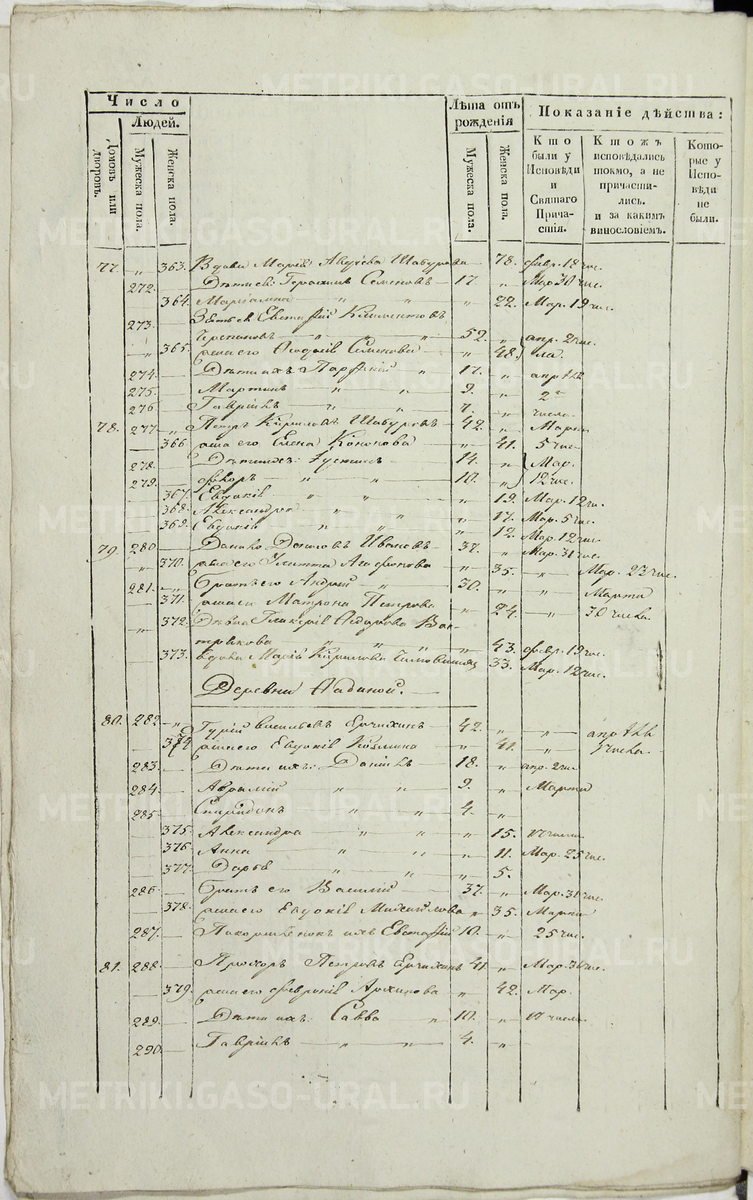 Число
Людей.
Домовъ или дворовъ.
Мужеска пола.
Женска пола.
Лѣта отъ рожденія
Мужеска пола.
Женска пола.
Показаніе дѣйства:
Кто были у Исповѣди и Святаго Причастія.
Ктожъ исповѣдались токмо, а не причастились. и за какимъ винословіемъ.
Которые у Исповѣди не были.
77. „ 363. Вдова Марія Шабурова 78. февр. 18 чис.
272. Дѣти ея: Герасимъ Семеновъ 17. „ Мар 30 чис.
364. Маріамна „ „ „ 22. Мар. 19 чис.
273. Зять ея Евстафій Климентовъ
„ „ 52. „ апр. 2 чис.
365. жена его Семенова „ 48. ла.
274. Дѣти ихъ „ 17. „
275. Мартинъ „ „ 9. „ 2
276 Гавріилъ „ „ 7. „ числа.
78. 277. „ Петръ Кириловъ Шабуровъ 42. „ Марта
366 жена его Елена Кононова „ 41. 5 чис.
278. Дѣти ихъ: Іустинъ 14. „ Мар.
279. Ѳедоръ „ „ 10. „ 12 чис.
367. Евдокія „ „ „ 19. Мар. 12 чи.
368. Александра „ „ „ 17. Мар. 5 чис.
369. Евдокія „ „ „ 12. Мар. 12 чис.
79. 280. Данило Ивановъ 37. „ Мар. 31 чис.
„ 370. жена его Улитта Агафонова „ 35. „ Мар. 22 чис.
281. „ Братъ его Андрей 30. „ Марта
371. жена его Матрона Петрова „ 24. „ 30 числа.
„ 372. Дѣва Гликерія
„ „ „ 43. февр. 19 чис.
373. Вдова Марія Кирилова 33. Мар. 12 чис.
Деревни
80. 282 „ Гурій Васильевъ Ерчихинъ 42. „ „
374 жена его Евдокія Козмина „ 41. „ числа
283. Дѣти ихъ: Даніилъ 18. „ апр. 2 чис
284. Авраамій „ „ 9. „ Марта
285. Спиридонъ „ „ 4. „
375. Александра „ „ „ 15. 17 числа
376. Анна „ „ „ 11. Мар. 25 чис.
377. Дарья „ „ „ 5.
286. Братъ его Василій 37. „ Мар. 31 чис.
378. жена его Евдокія Михайлова „ 35. Марта
287. ихъ Евстафій 10. „ 25 чис.
81. 288. Прохоръ Петровъ Ерчихинъ 41. „ Мар. 31 чис.
379. жена его Февронія Архипова „ 42. Мар.
289. Дѣти ихъ: Савва „ 10. „ 17 числа
290. Гавріилъ „ „ 4. „
METRIKI.GASO-URAL.RU